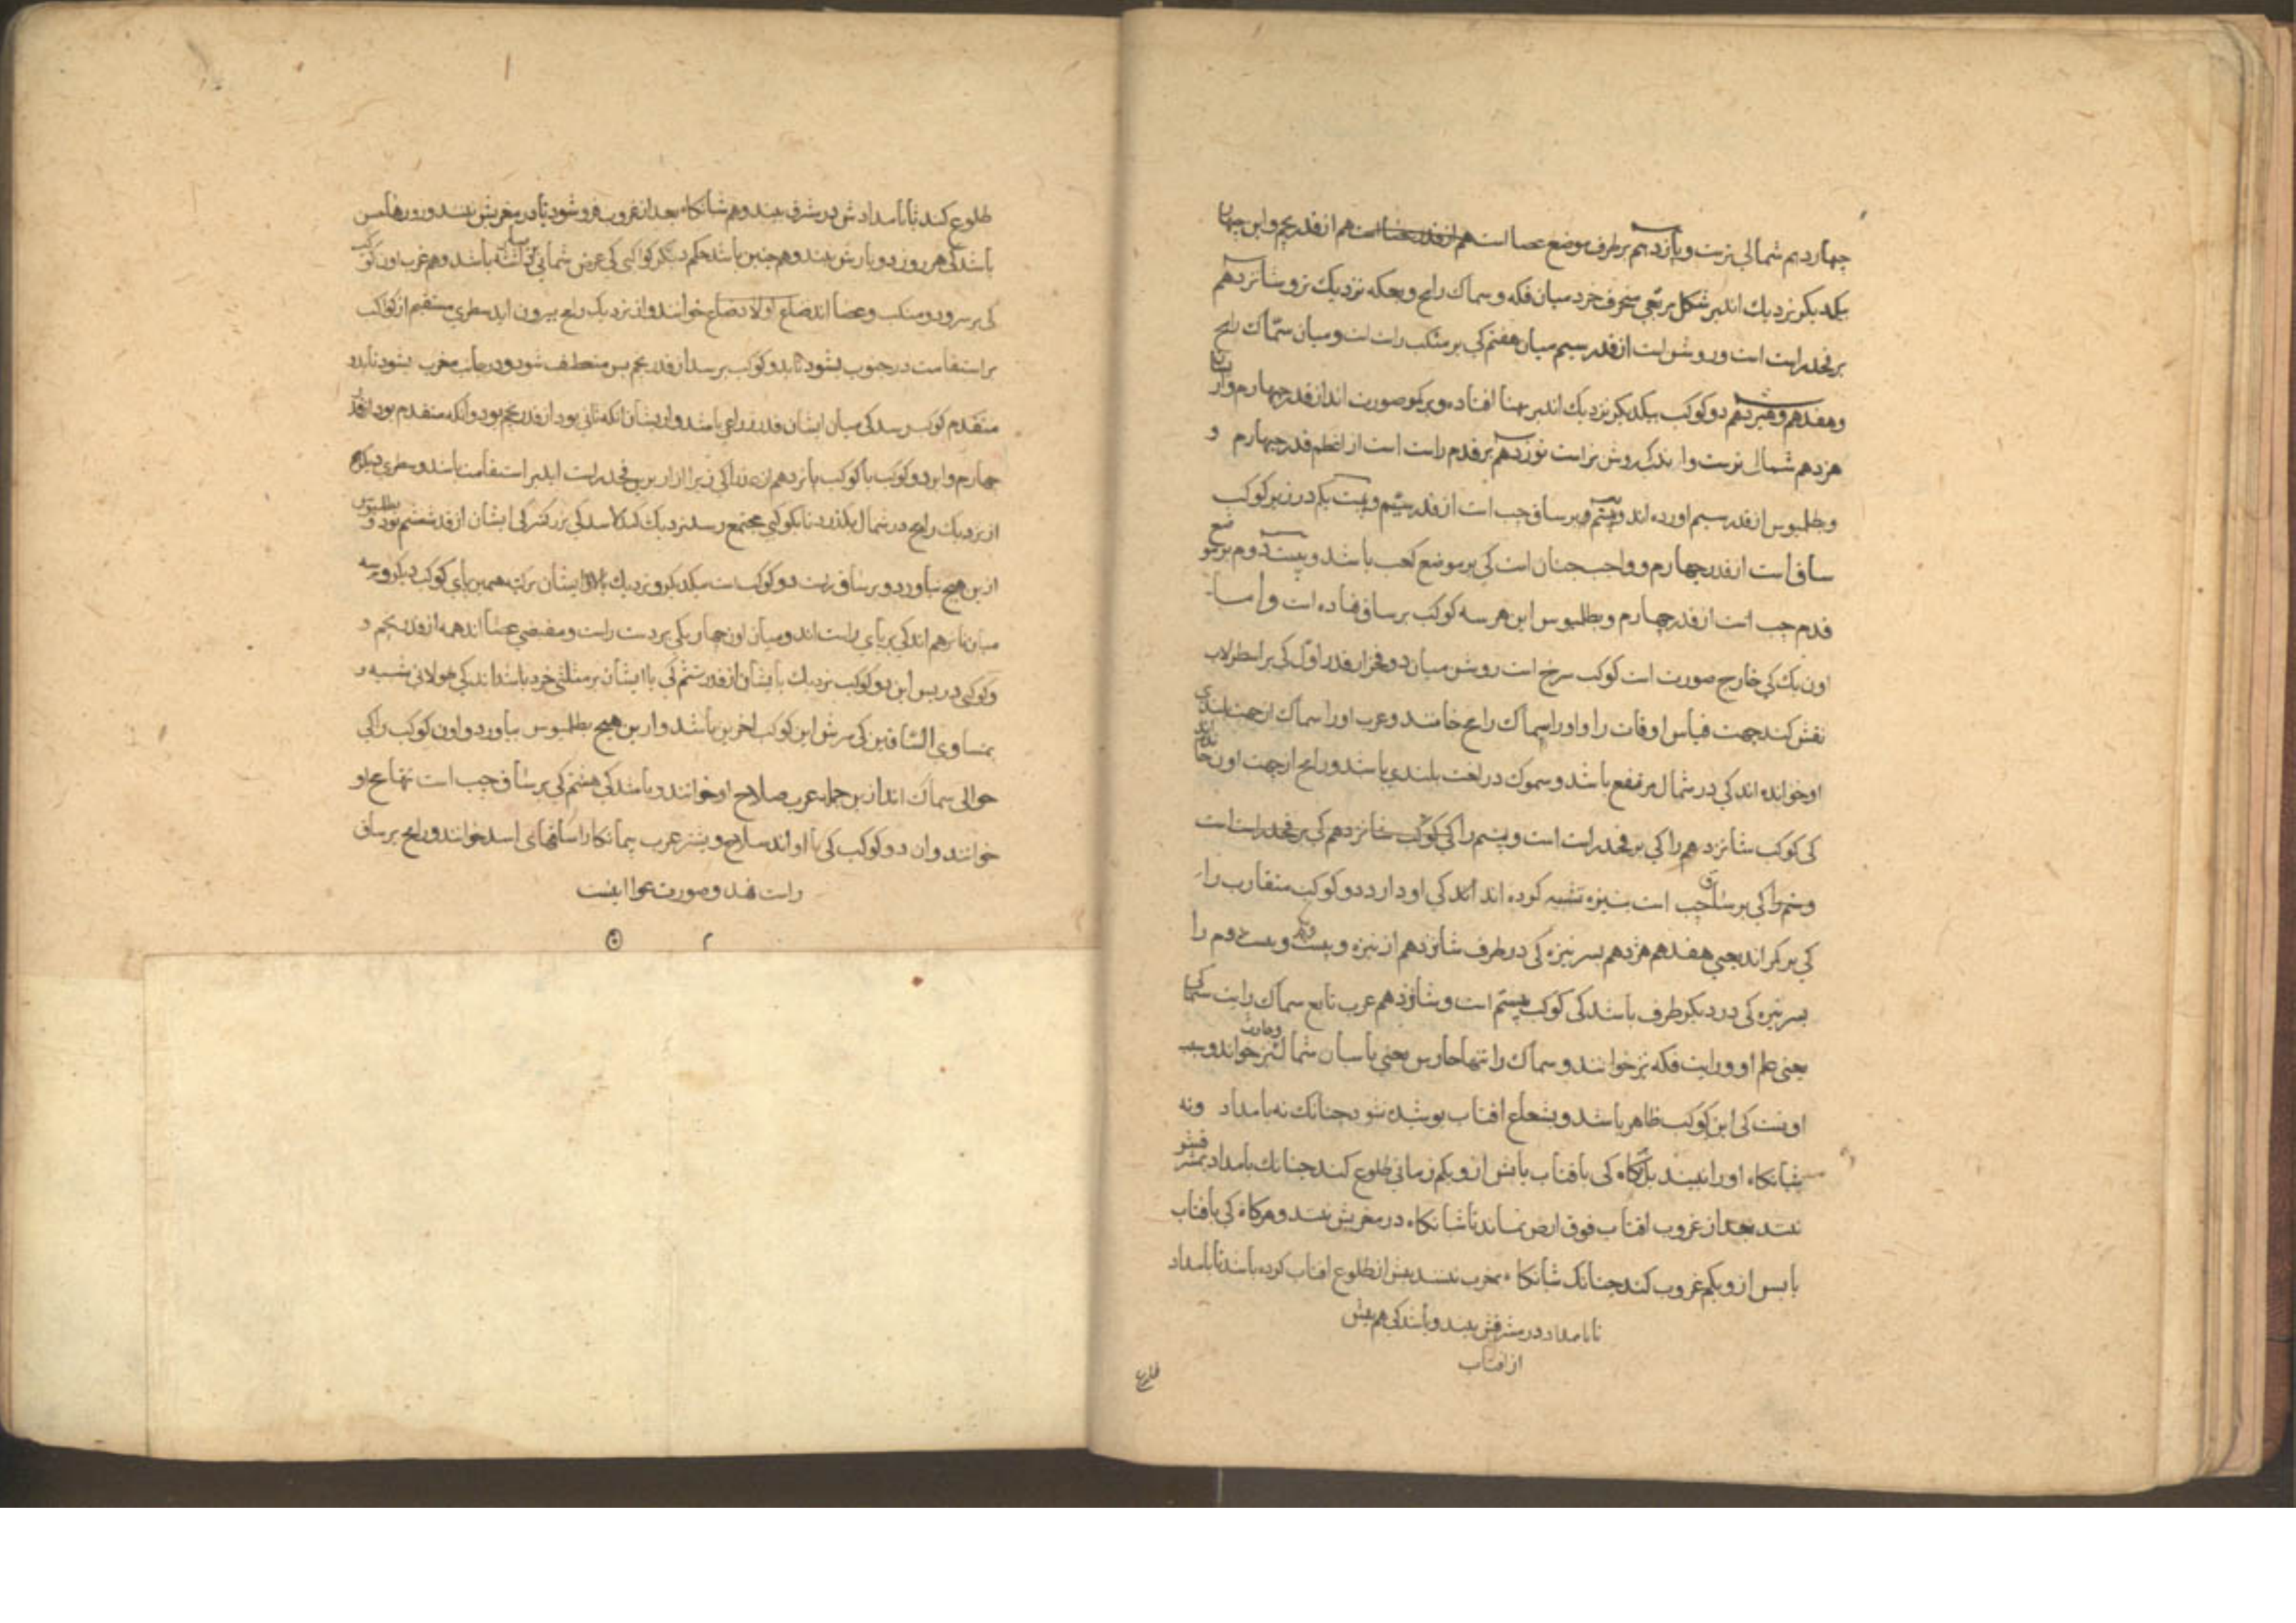 چهاردهم شمالی ترست و پانزدهم بر طرف موضع عصا است هم از قدر پنجم و این چهار
بیکدیگر نزدیک اند بر شکل مربعی منحرف خرد میان فکه و سماک رامح و بفکه نزدیک تر و شانزدهم
بر فخذ راست است و روشن است از قدر سیم میان هفتم کی بر منکب راست است و میان سماک رامح
و هفدهم و هیزدهم دو کوکب بیکدیگر نزدیک اند بر پهنا افتاده و بر کمر صورت اند از قدر چهارم و از
هژدهم شمالی ترست و اندک روشن تر است نوزدهم بر قدم راست است از اعظم قدر چهارم و
و بطلمیوس از قدر سیم اورده اند و بیستم بر ساق چب است از قدر سیم و بیست یکم در زیر کوکب
ساق است از قدر چهارم و واجب جنان است کی بر موضع کعب باشد و بیست دوم بر
قدم جب است از قدر چهارم و بطلمیوس این هر سه کوکب بر ساق نهاده است و اما
اون یک کی خارج صورت است کوکب سرخ است روشن میان دو فخذ از قدر اول کی بر اسطرلاب
نقش کنند جهت قیاس اوقات را و اورا سماک رامح خانند و عرب اورا سماک از جهت بلندی
او خوانده اند کی در شمال مرتفع باشد و سموک در لغت بلندی باشد و رامح از جهت اون
کی کوکب شانزدهم را کی بر فخذ راست است و بیستم را کی کوکب شانزدهم کی بر فخذ راست است
و بیستم را کی بر ساق جب است بنیزه تشبیه کرده اند کی او دارد دو کوکب متقارب را
کی بر کمر اند یعنی هفدهم هژدهم بسر نیزه کی در طرف شانزدهم از نیزه و بیست یکم و بیست دوم را
بسر نیزه کی در دیگر طرف باشد کی کوکب بیستم است و شانزدهم عرب تابع سماک رایت سماک
یعنی علم او و رایت فکه نیز خوانند و سماک را تنها حارس یعنی پاسبان شمال نیز خوانند و
اونست کی این کوکب ظاهر باشد و بشعاع افتاب بوشیده نشود جنانک نه بامداد و نه
شبانکاه اورا نبینند بل کاه کی با افتاب یا بیش ازو بکم زمانی طلوع کند جنانک بامداد بمشرقش
نبیند بعد از غروب افتاب فوق ارض بماند تا شبانکاه در مغربش بینند و هرکاه کی با افتاب
یا بس ازو بکم غروب کند جنانک شبانکاه بمغرب نبینند بیش از طلوع افتاب کرده باشد تا بامداد
تا بامداد در مشرقش بینند و باشد کی هم بیش
از افتاب
طلوع کند تا بامدادش در مشرق بینند و هم شبانکاه بعد از غروب فرو شود تا در مغربش بینند و
باشد کی هر روز دو بارش بینند و همچنین باشد حکم دیگر کواکبی کی عرض شمالی باشد و هم عرب اون
کی بر سر و دو منکب و عصا اند ضباع و اولاد ضباع خوانند و از نزدیک رامح بیرون اید سطری مستقیم از کواکب
بر استقامت در جنوب بشود تا بدو کوکب برسد از قدر پنجم بس منعطف شود و در جانب مغرب بشود تا بدو
متقدم کوکب رسد کی میان ایشان قدر ذراعی باشد و از یشان انکه ثانی بود از قدر پنجم بود و آنکه متقدم بود از قدر
چهارم و این دو کوکب با کوکب پانزدهم از عذرا کی زیر ازار برین فخذ راست اید بر استقامت باشند و سطری دیگر
از نزدیک رامح در شمال بگذرد تا بکوکبی مجتمع رسد نزدیک کبد الاسد کی بزرگتر کی ایشان از قدر ششم بود و بطلمیوس
ازین هیچ نیاورد و بر ساق راست دو کوکب است بیکدیگر و نزدیک بالای ایشان
میان نوزدهم اند کی بر پای راست اند و میان اون چهار یکی بر دست راست و مقبض عصا اند همه از قدر پنجم و
و کوکبی در بس این دو کوکب نزدیک بایشان از قدر ششم کی با ایشان بر مثلثی خرد باشد اند کی طولانی شبیه
بمتساوی الساقین کی سرش این کوکب اخرین باشد و ازین هیچ بطلمیوس نیاورد و اون کوکب را کی
حوالی سماک اند ازین جمله عرب سلاح او خوانند و باشد کی هشتم کی بر ساق جب است تنها رمح او
خوانند و ان دو کوکب کی با او اند سلاح و بیشتر عرب سماکان را ساقهای اسد خوانند و رامح بر ساق
راست نهند و صورت عوا اینست